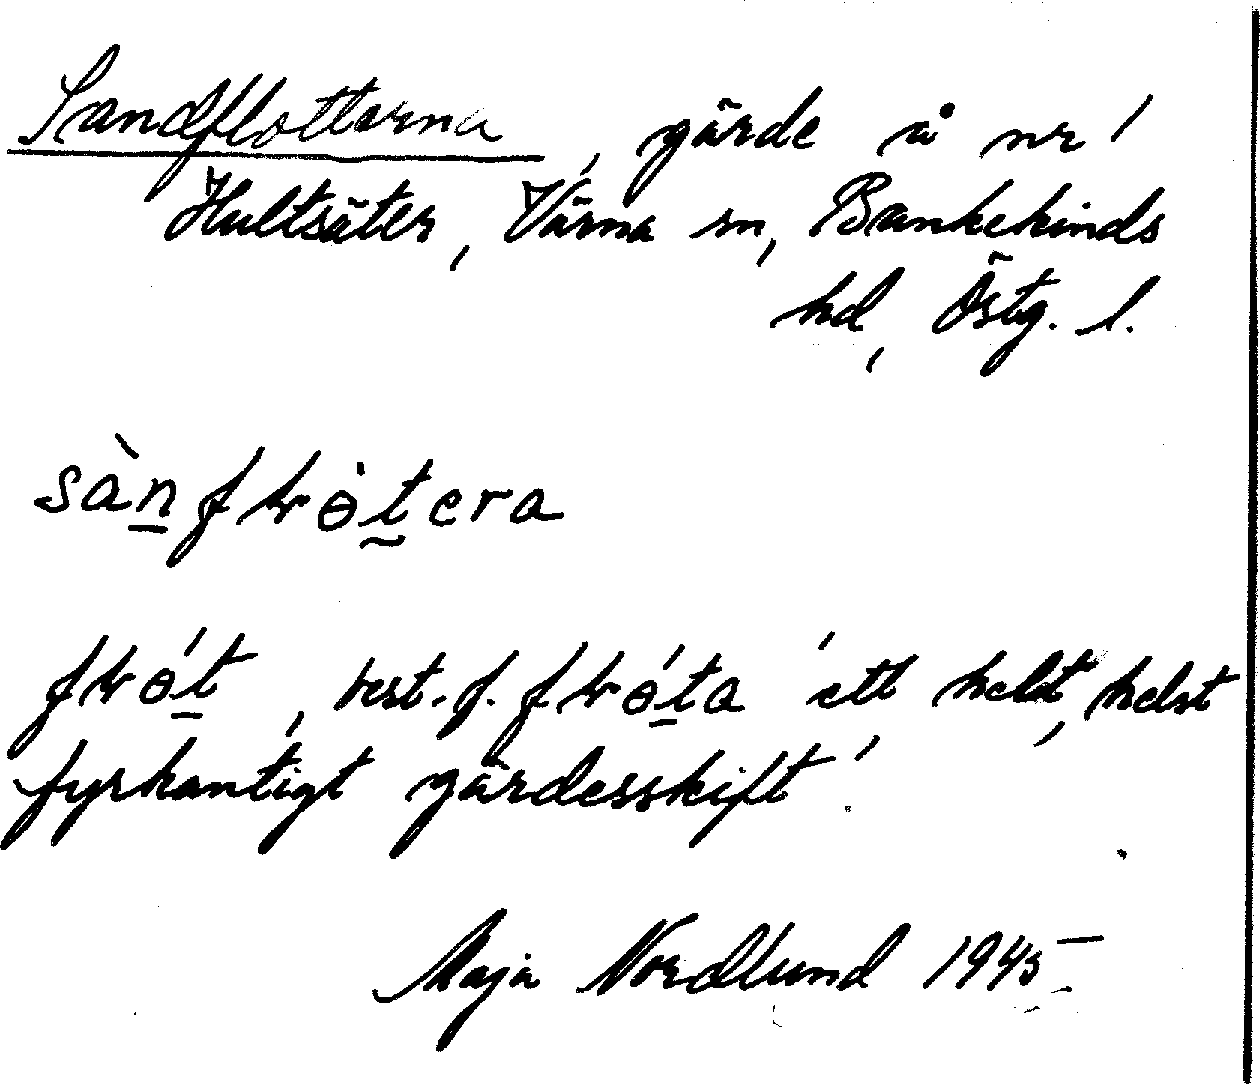 Sandflottarna, gärde å nr 1
Hultsäter, Värna sn, Bankekinds
hd, Östg. l.
sàn̲fɫɵ̀t̲era
fɫɵ́t̲, best. f. fɫɵ́t̲a 'ett helt, helst
fyrkantigt gärdesskift'.
Maja Nordlund 1945